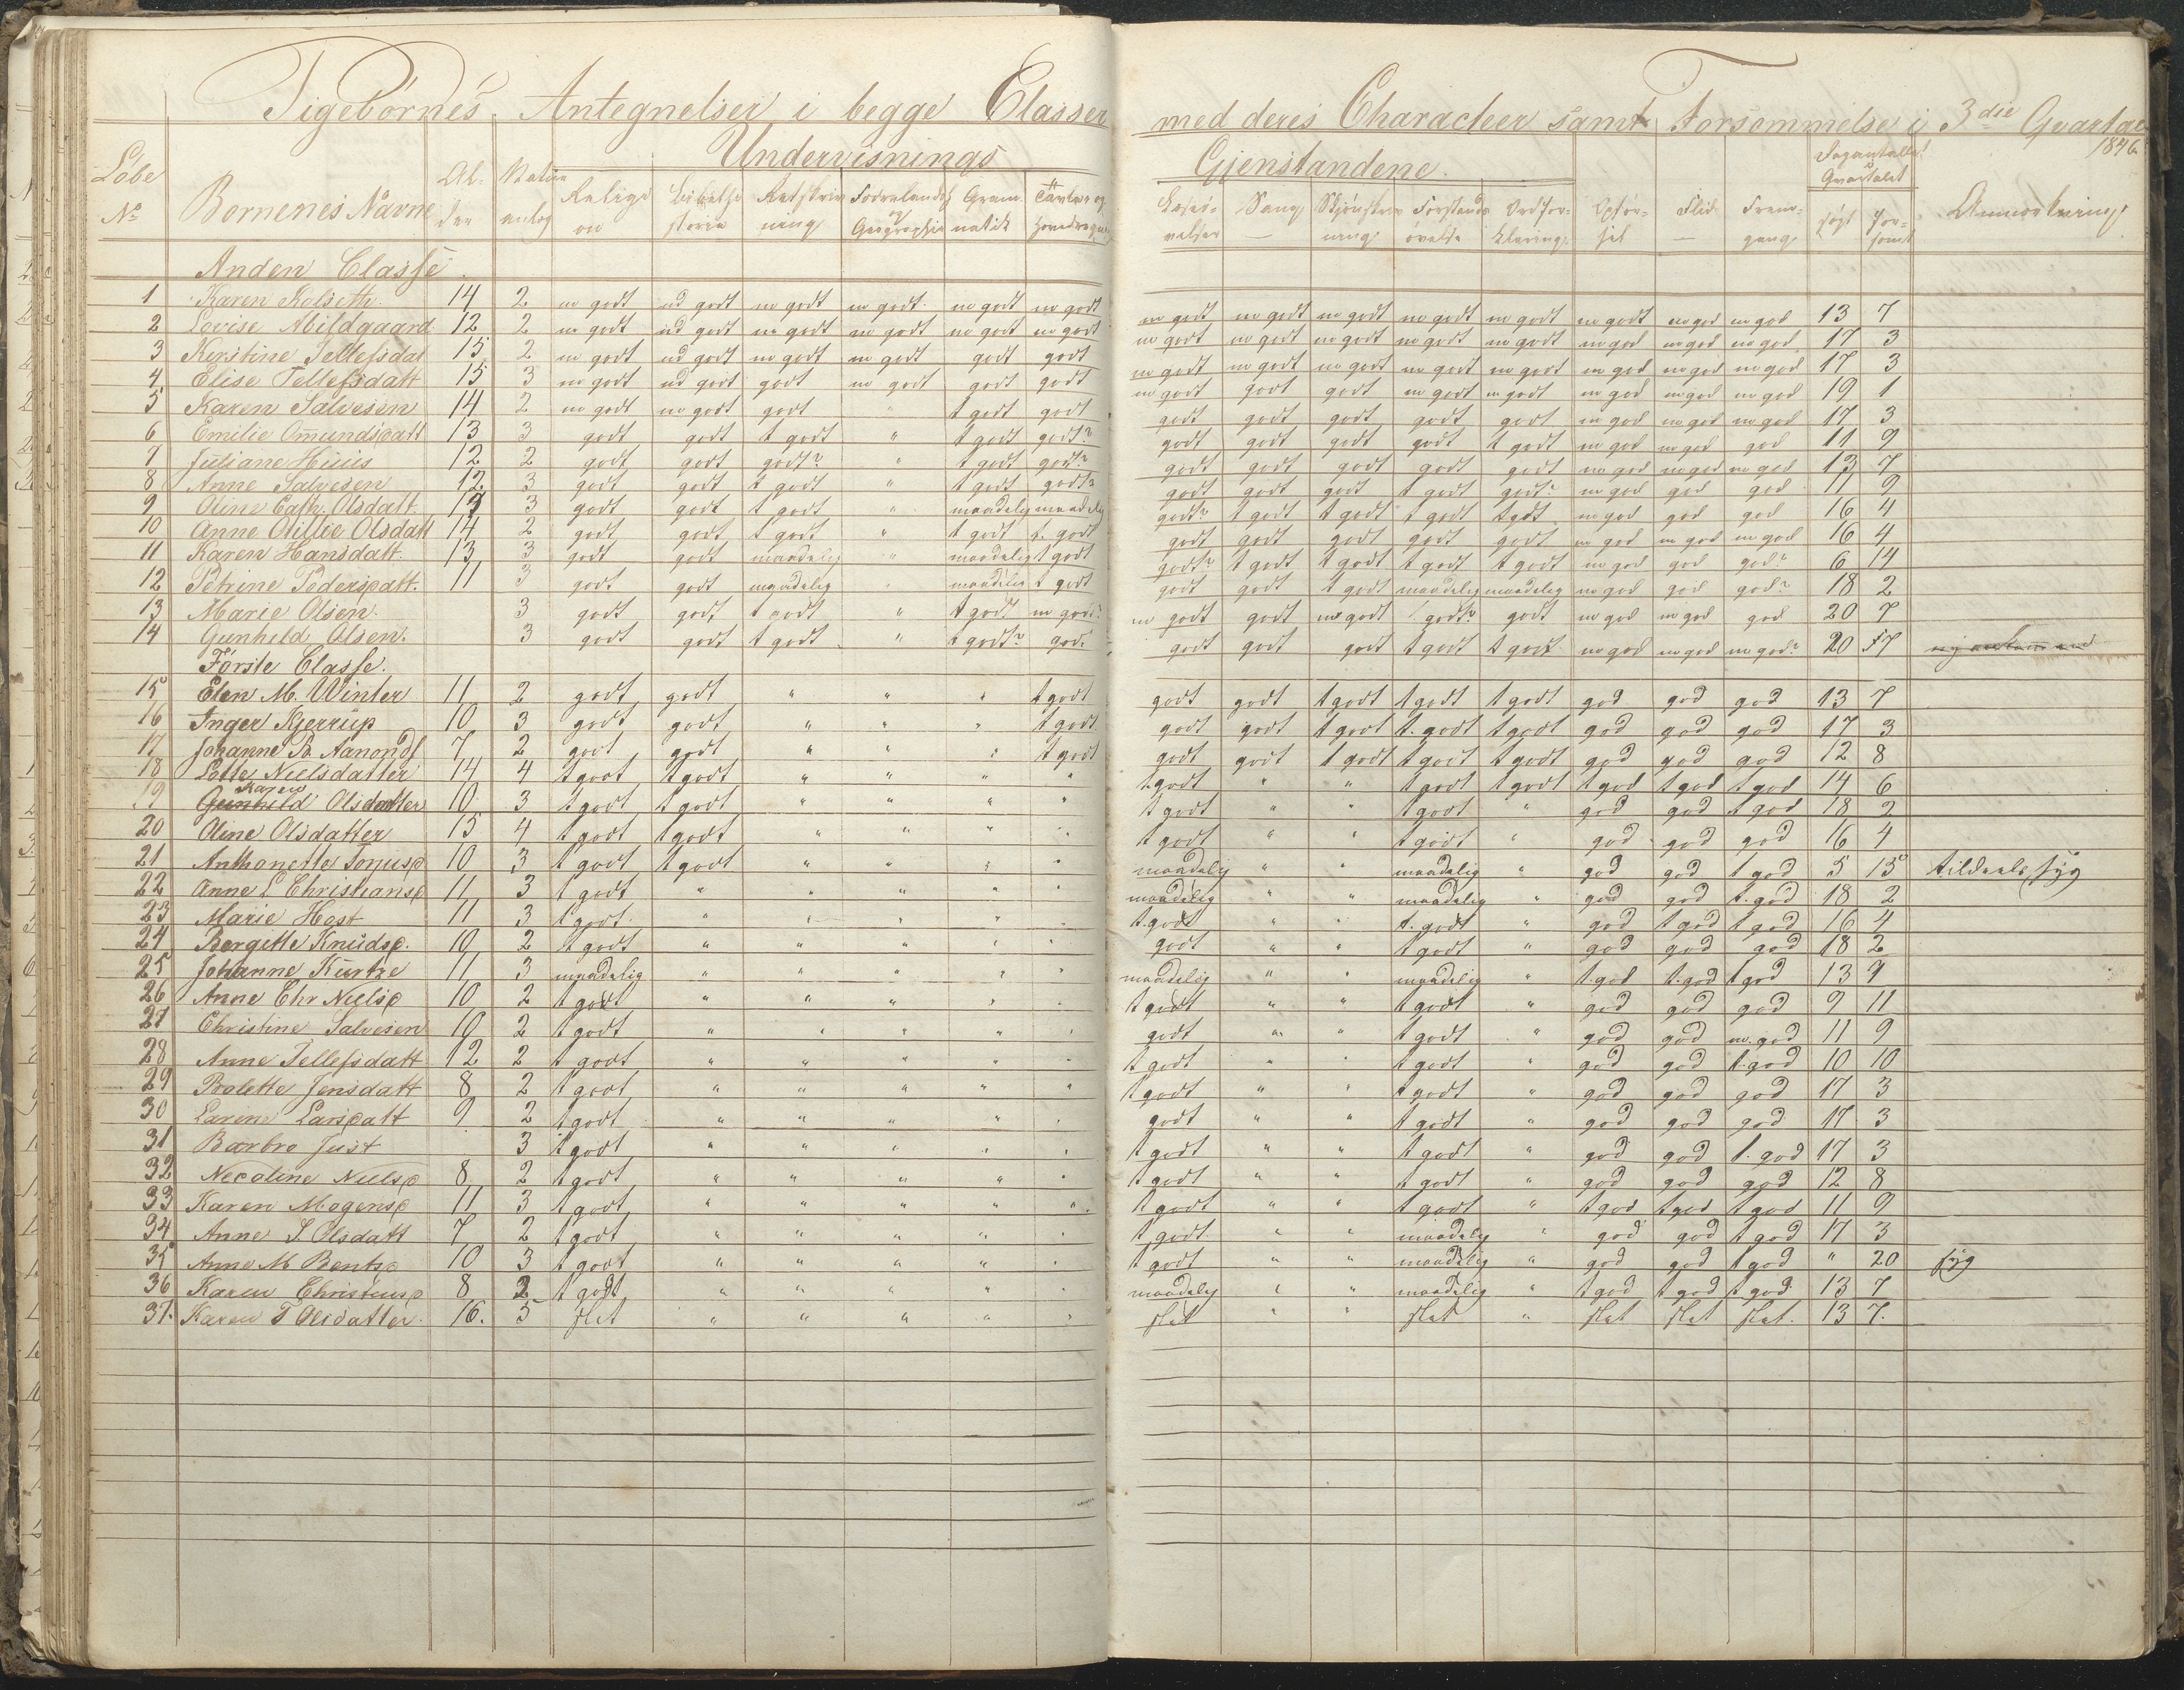 Pigebörnes Antegnelser i begge Classer med deres Characteer samt Forsömmelse i 3die Qvartal
1846
Undervisnings Gjenstandene.
Löbe No Börnenes Navne Al-der Natur anlæg Religion Bibelhistorie Retskrivning Fædrelandets Geographie Grammatik Tavle og Hovedregning Læseövelser Sang Skjönskrivning Forstandsövelse Ordforklaring Opförsel Flid Fremgang Dagantallet Qvartalet sögt forsömt Anmærkning
Anden Classe.
1 Karen Kolseth 14 2 m godt ud godt m godt m godt m godt m godt m godt m godt m godt m godt m godt m godt m god m god 13 7
2 Lovise Abildgaard 12 2 m godt ud godt m godt m godt m godt m godt m godt m godt m godt m godt m godt m god m god m god 17 3
3 Kirstine Tellefsdat 15 2 m godt ud godt m godt m godt godt godt m godt m godt m godt m godt m godt m god m god m god 17 3
4 Elise Tellefsdatt 15 3 m godt ud godt godt m godt godt godt m godt godt godt m godt m godt m god m god m god 19 1
5 Karen Salvesen 14 2 m godt m godt godt " t godt godt godt godt godt godt godt m god m god m god 17 3
6 Emilie Omundsdatt 13 3 godt godt t godt " t godt godt? godt godt godt godt t godt m god m god god 11 9
7 Juliane Huus 12 2 godt godt godt? " t godt godt? godt godt godt godt godt m god m god m god 13 7
8 Anne Salvesen 12 3 godt godt t godt " t godt godt? godt godt godt t godt godt? m god god god 11 9
9 Oline Cath. Olsdatt 3 godt godt t godt " maadelig maadelig godt? t godt t godt t godt t godt m god god god 16 4
10 Anne Otillie Olsdatt 14 2 godt godt t godt " t godt t. godt godt godt godt godt godt m god m god m god 16 4
11 Karen Hansdatt. 13 3 godt godt maadelig " maadelig t godt godt? t godt t godt t godt t godt m god god god? 6 14
12 Petrine Pedersdatt. 11 3 godt godt maadelig " maadelig t godt godt godt t godt maadelig maadelig m god god god? 18 2
13 Marie Olsen 3 godt godt t godt " t godt m godt? m godt godt m godt godt? godt m god m god god 20 7
14 Gunhild Olsen. 3 godt godt t godt " t godt? godt godt godt godt t godt t godt m god m god m god? 20 7
Förste Classe.
15 Elen M. Winter 11 2 godt godt " " " t godt godt godt t godt t godt t godt god god god 13 7
16 Inger Kjerrup 10 3 godt godt " " " t godt godt godt t godt t. godt t godt god god god 17 3
17 Johanne Aanonds 7 2 godt godt " " " t godt godt godt t godt t godt t godt god god god 12 8
18 Lotte Nielsdatter 14 4 t godt t godt " " " " t godt " " t godt t godt t god t god t god 14 6
19 Gunhild Karen Olsdatter 10 3 t godt t godt " " " " t godt " " t godt " god god t god 18 2
20 Oline Olsdatter 15 4 t godt t godt " " " " t godt " " t godt " god god god 16 4
21 Anthonette Torjusd 10 3 t godt t godt " " " " maadelig " " maadelig " god god t god 5 15 tildeels syg
22 Anne L Christiansd 11 3 t godt " " " " " maadelig " " maadelig " god god t. god 18 2
23 Marie Host 11 3 t godt " " " " " t. godt " " t. godt " god t god t god 16 4
24 Bergitte Knudsd. 10 2 t godt " " " " " godt " " t godt " god god god 18 2
25 Johanne Kurtze 11 3 maadelig " " " " " maadelig " " maadelig " t. god t. god t god 13 7
26 Anne Chr Nielsd 10 2 t godt " " " " " t godt " " t godt " god god god 9 11
27 Christine Salvesen 10 2 t godt " " " " " godt " " t godt " god god m. god 11 9
28 Anne Tellefsdatt 12 2 t godt " " " " " t godt " " t godt " god god t. god 10 10
29 Bolette Jensdatt 8 2 t godt " " " " " t godt " " t godt " god god god 17 3
30 Laren Larsdatt 9 2 t godt " " " " " godt " " t godt " god god god 17 3
31 Barbro Just 3 t godt " " " " " t godt " " t godt " god god t. god 17 3
32 Necoline Nielsd 8 2 t godt " " " " " t godt " " t godt " god god god 12 8
33 Karen Mogensd 11 3 t godt " " " " " t godt " " t godt " t god t god t god 11 9
34 Anne S. Olsdatt 7 2 t godt " " " " " t godt " " maadelig " god god t god 17 3
35 Anne M Bentsd 10 3 t godt " " " " " t godt " " maadelig " god god t god " 20 syg
36 Karen Christensd 8 2 t godt " " " " " maadelig " " maadelig " t god t god t god 13 7
37. Karen T Olsdatter 16. 5 slet " " " " " slet " " slet " slet slet slet. 13 7.